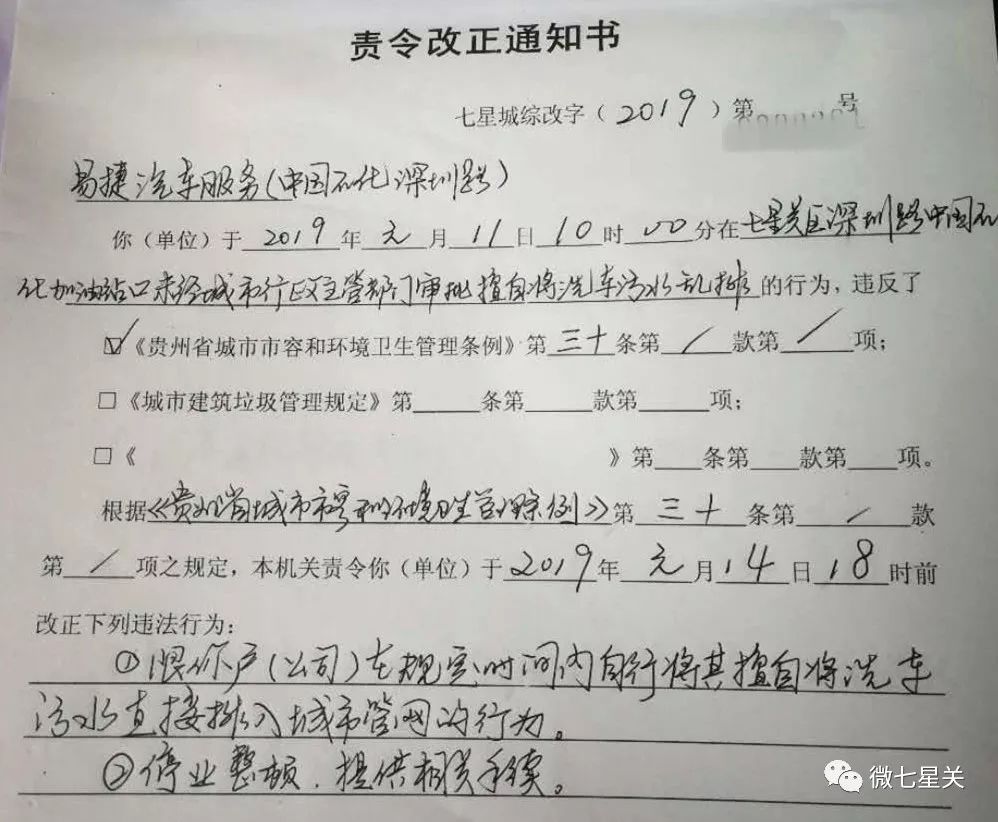 责令改正通知书
七星城综改字（2019）第 号
易捷汽车服务（中国石化深圳路）
你（单位）于2019年元月11日10时00分在七星关区深圳路中国石
化加油站口未经城市行政主管部门审批擅自将洗车污水乱排的行为，违反了
☑《贵州省城市市容和环境卫生管理条例》第三十条第/款第/项；
□《城市建筑垃圾管理规定》第 条第 款第 项；
□《 》第 条第 款第 项。
根据《贵州省城市市容和环境卫生管理条例》第三十条第/款
第/项之规定，本机关责令你（单位）于2019年元月14日18时前
改正下列违法行为：
①限你户（公司）在规定时间内自行将其擅自将洗车
污水直接排入城市管网的行为。
②停业整顿．提供相关手续。
微七星关